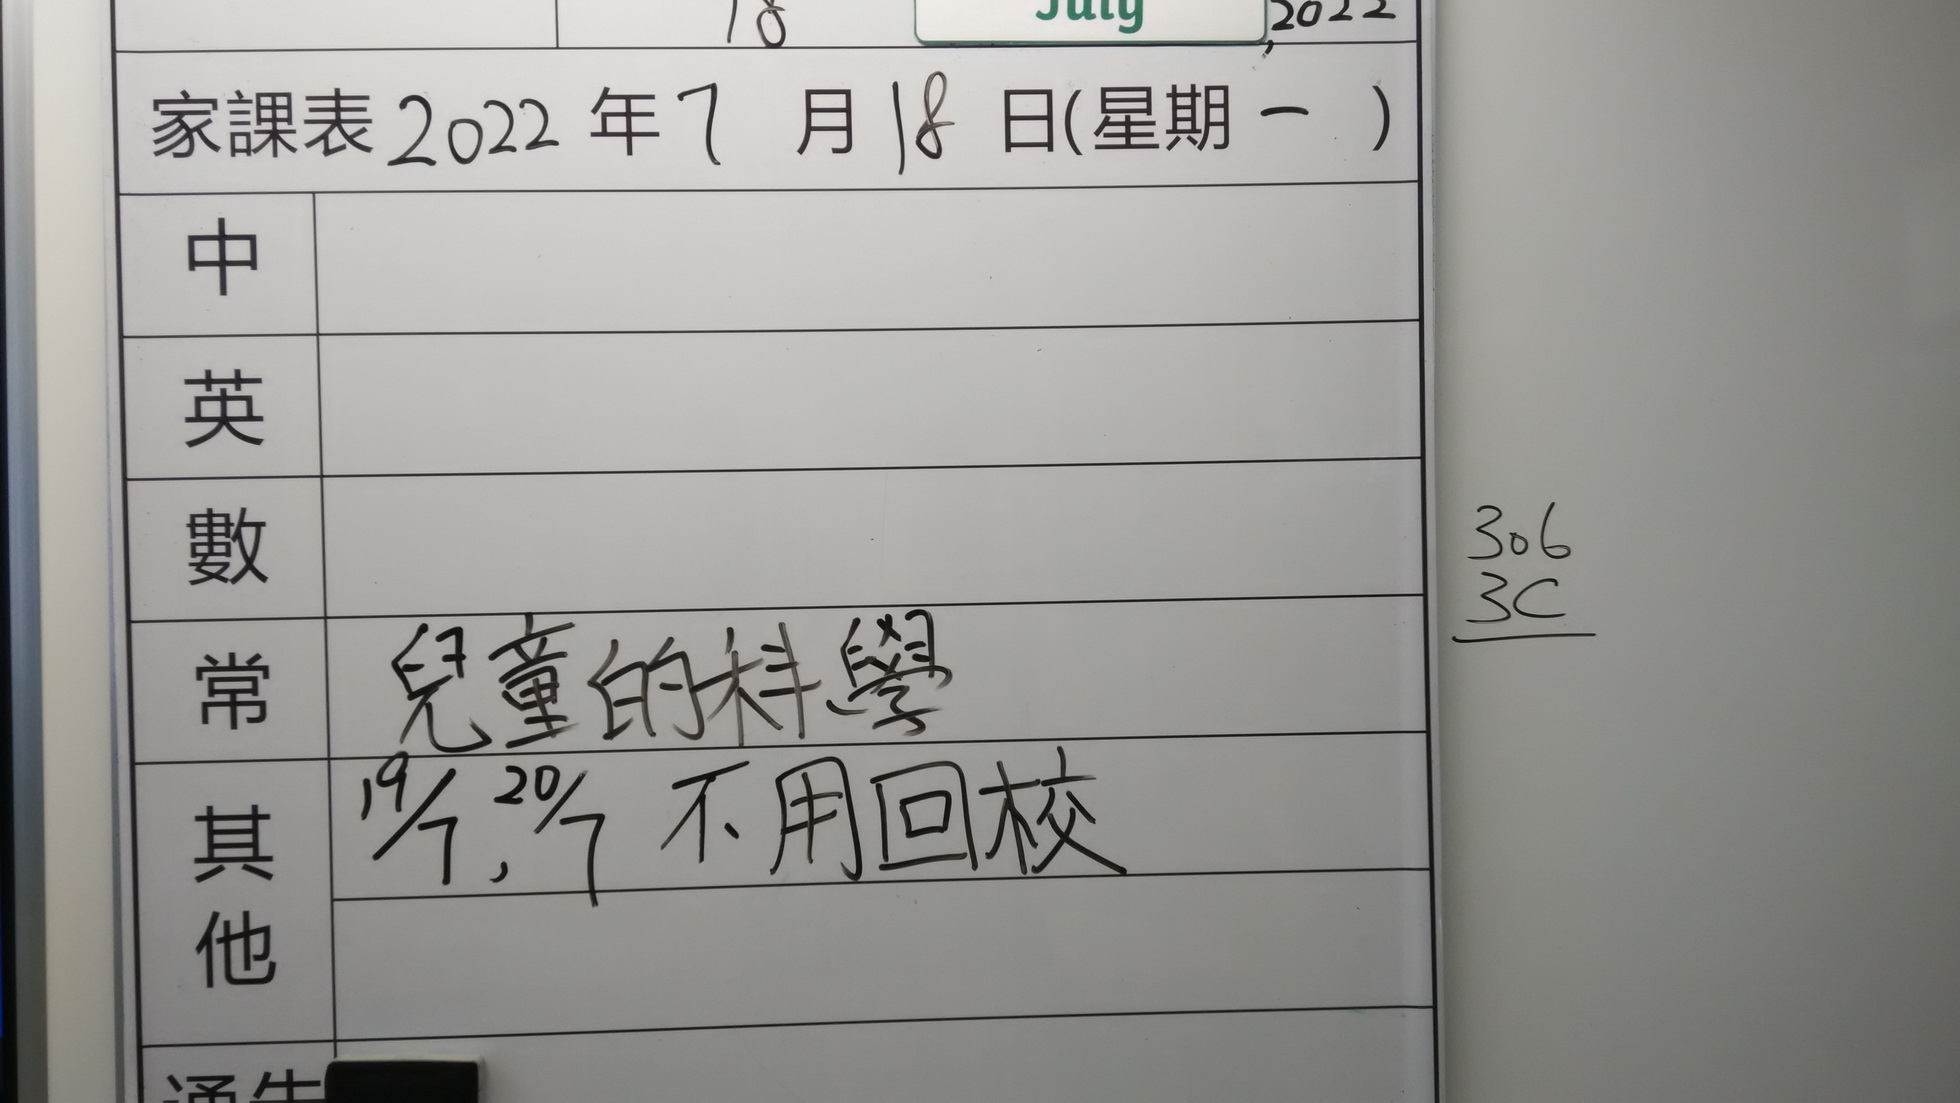 18 July, 2022
家課表 2022 年 7 月 18 日(星期一 )
中
英
數
306
3C
常 兒童的科學
其他 19/7, 20/7 不用回校
通告